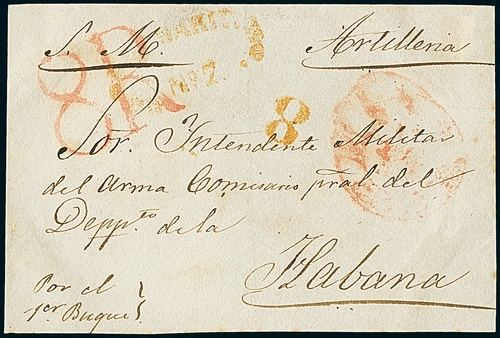 S. M.     Artilleria
8R
Nº 2.
8
Sor. Intendente Militar
del Arma Comisario pral. del
Depp.to de la
Habana
Por el
1er Buque